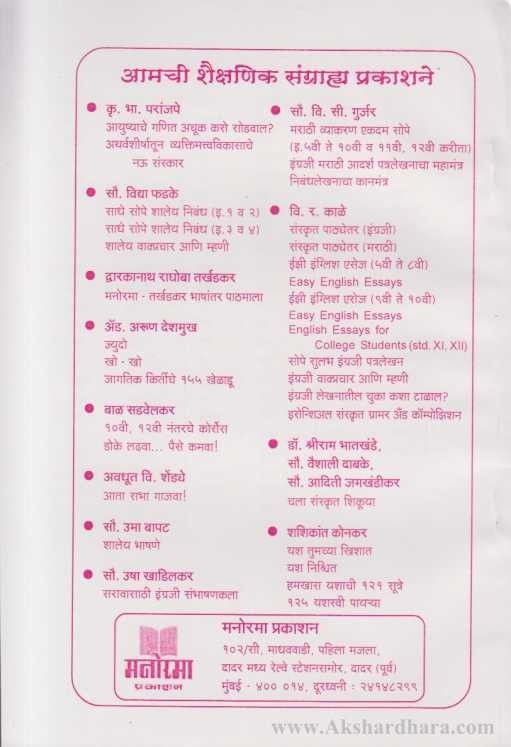 आमची शैक्षणिक संग्राह्य प्रकाशने
कृ. भा. परांजपे
आयुष्याचे गणित अचूक कसे सोडवाल?
अथर्वशीर्षातून व्यक्तिमत्त्वविकासाचे
नऊ संस्कार
सौ. विद्या फडके
साधे सोपे शालेय निबंध (इ.१ व २)
साधे सोपे शालेय निबंध (इ.३ व ४)
शालेय वाक्प्रचार आणि म्हणी
द्वारकानाथ राघोबा तर्खडकर
मनोरमा - तर्खडकर भाषांतर पाठमाला
अ‍ॅड. अरूण देशमुख
ज्युदो
खो - खो
जागतिक किर्तिचे १५५ खेळाडू
बाळ सडवेलकर
१०वी, १२वी नंतरचे कोर्सेस
डोके लढवा... पैसे कमवा!
अवधूत वि. शेंड्ये
आता सभा गाजवा!
सौ. उमा बापट
शालेय भाषणे
सौ. उषा खाडिलकर
सरावासाठी इंग्रजी संभाषणकला
सौ. वि. सी. गुर्जर
मराठी व्याकरण एकदम सोपे
(इ.५वी ते १०वी व ११वी, १२वी करीता)
इंग्रजी मराठी आदर्श पत्रलेखनाचा महामंत्र
निबंधलेखनाचा कानमंत्र
वि. र. काळे
संस्कृत पाठ्येतर (इंग्रजी)
संस्कृत पाठ्येतर (मराठी)
ईझी इंग्लिश एसेज (५वी ते ८वी)
Easy English Essays
ईझी इंग्लिश एसेज (९वी ते १०वी)
Easy English Essays
English Essays for
College Students (std. XI, XII)
सोपे सुलभ इंग्रजी पत्रलेखन
इंग्रजी वाक्प्रचार आणि म्हणी
इंग्रजी लेखनातील चुका कशा टाळाल?
इसेन्शिअल संस्कृत ग्रामर अँड कॉम्पोझिशन
डॉ. श्रीराम भातखंडे,
सौ. वैशाली दाबके,
सौ. आदिती जमखंडीकर
चला संस्कृत शिकूया
शशिकांत कोनकर
यश तुमच्या खिशात
यश निश्चित
हमखास यशाची १२१ सूत्रे
१२५ यशस्वी पायऱ्या
मनोरमा
प्रकाशन
मनोरमा प्रकाशन
१०२/सी, माधववाडी, पहिला मजला,
दादर मध्य रेल्वे स्टेशनसमोर, दादर (पूर्व)
मुंबई - ४०० ०१४, दूरध्वनी : २४१४८२९९
www.Akshardhara.com